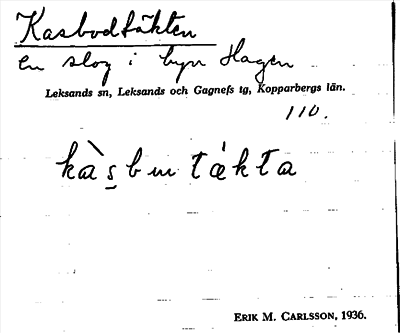 Kasbodtäkten
en slog i byn Hagen
Leksands sn, Leksands och Gagnefs tg, Kopparbergs län.
110.
ERIK M. CARLSSON, 1936.